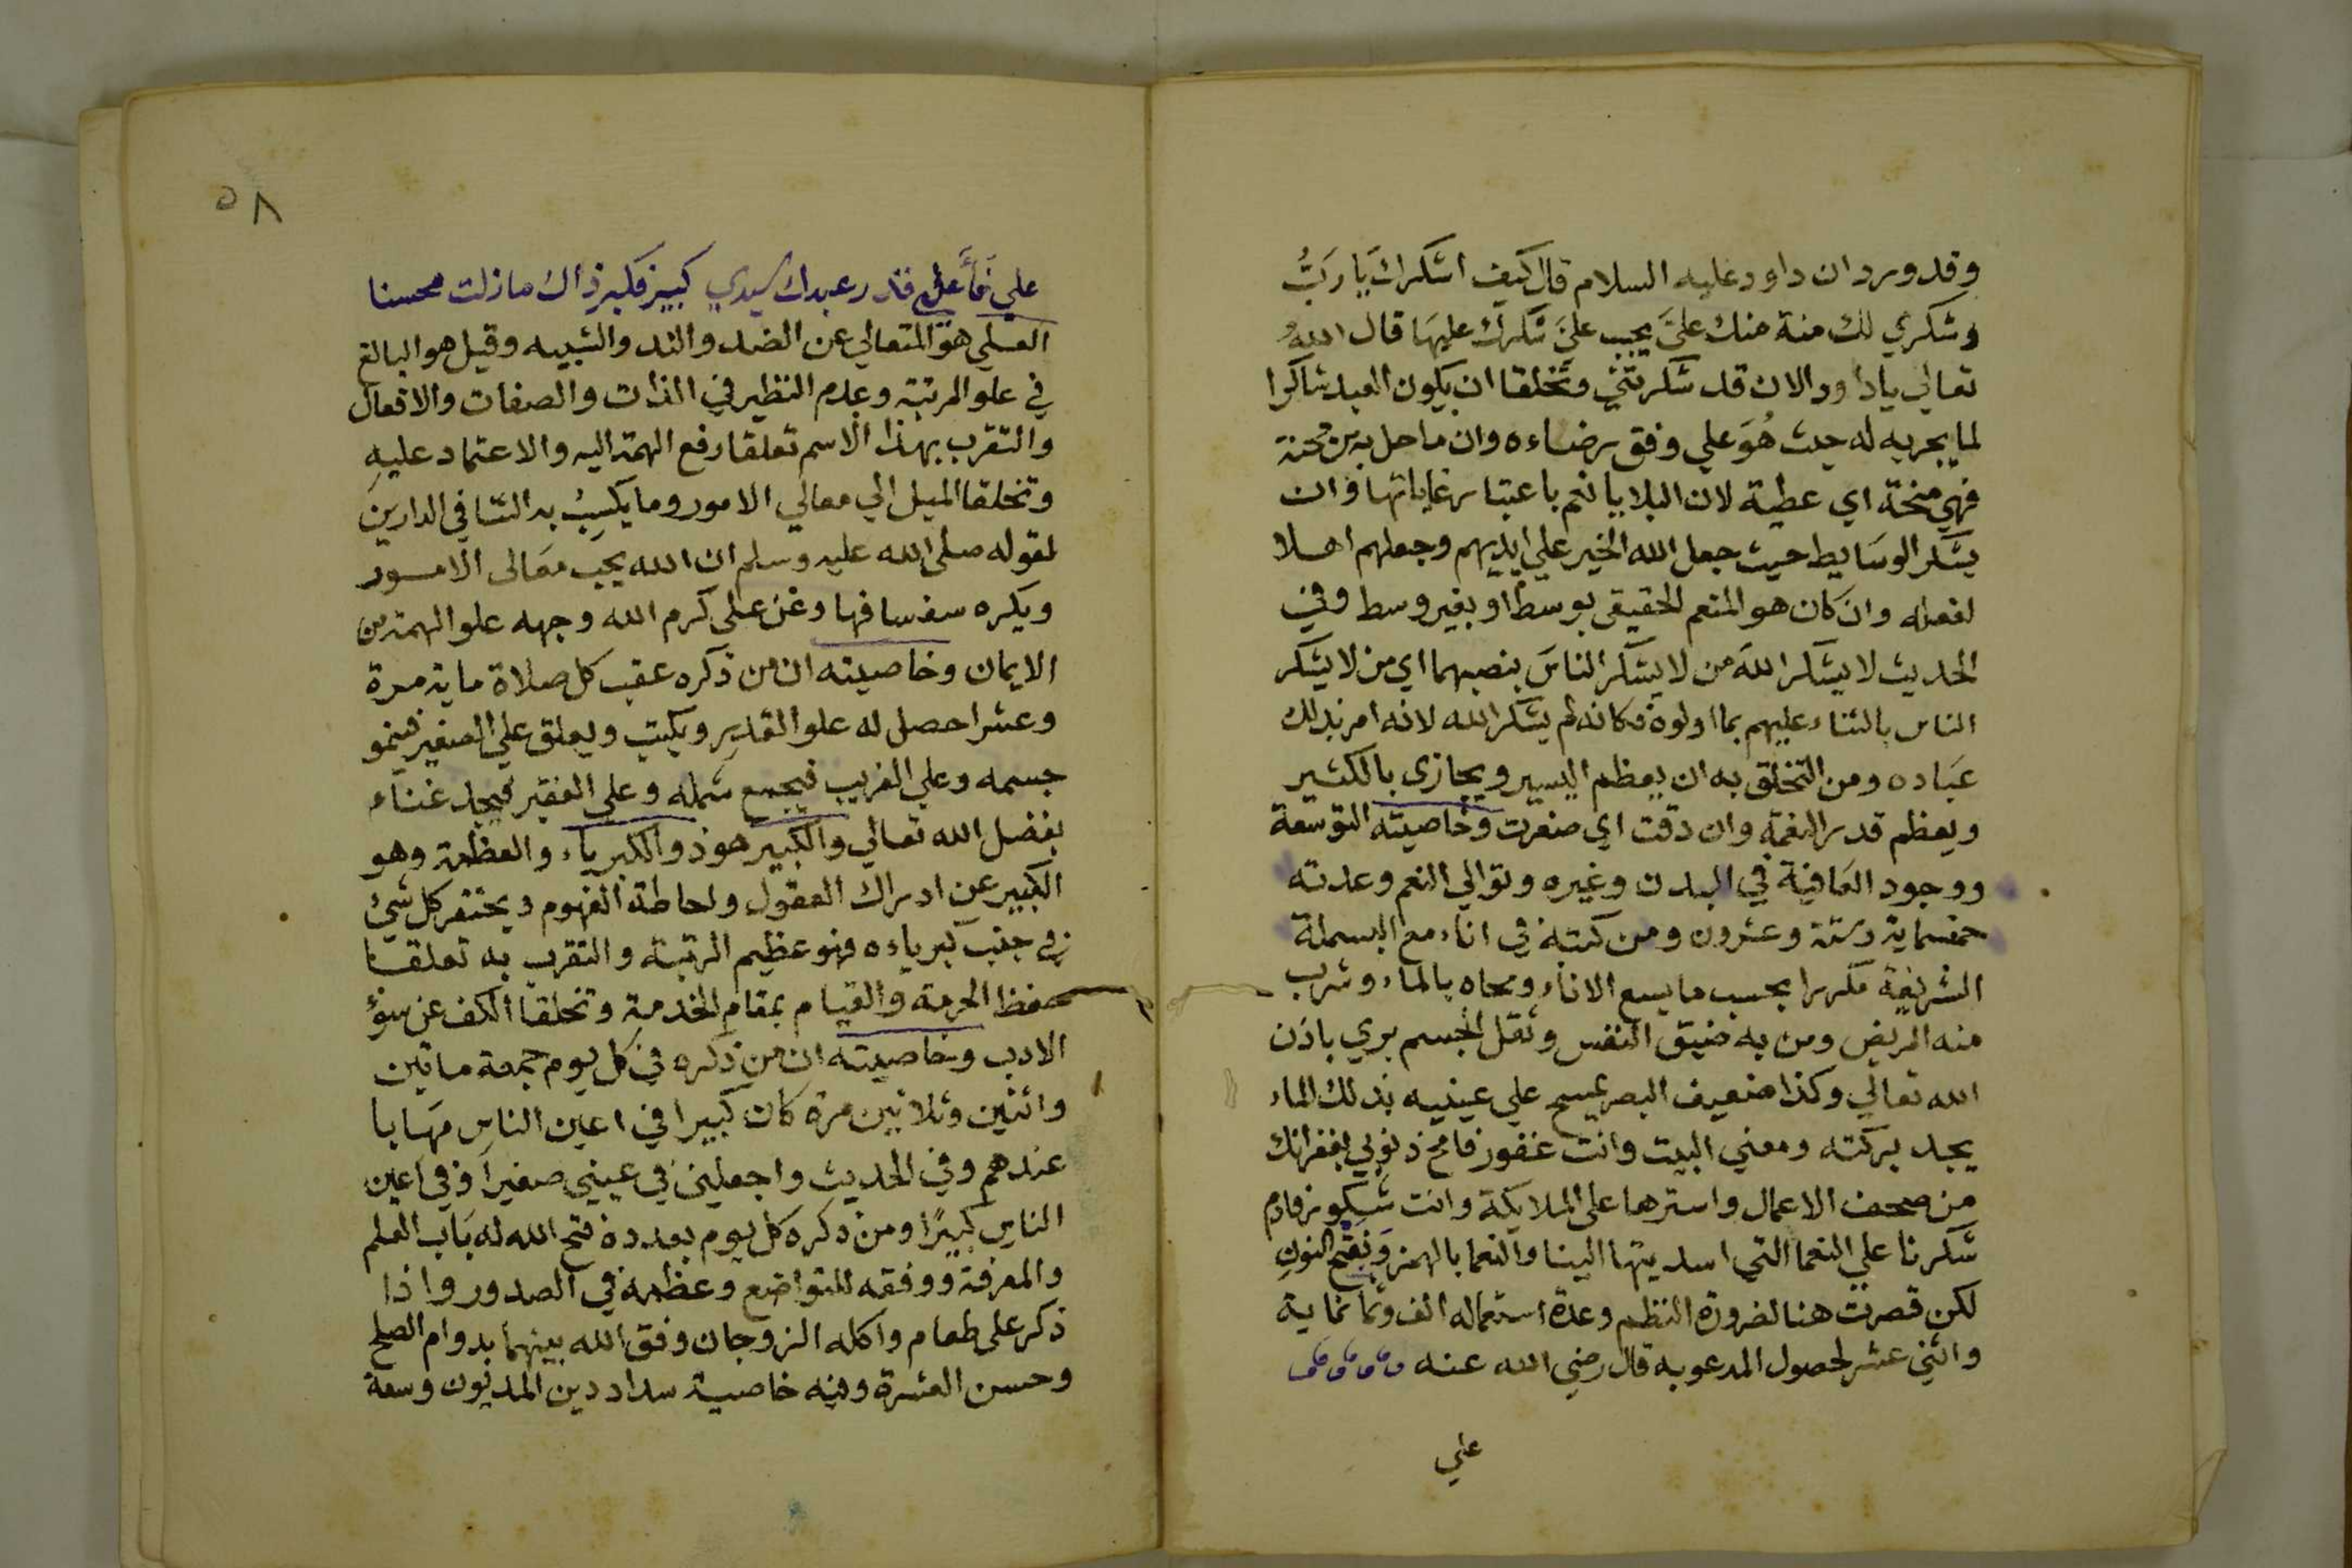 وقد ورد ان داود عليه السلام قال كيف اشكرك يا رَبُّ
وشكري لك منة منك عليَّ يجب عليَّ شكرك عليهَا قال اللهُ
تعالي يا داود الان قد شكرتني وتخلقا ان يكون العبد شاكرا
لما يجريه له حيث هُوَ علي وفق رضاءه وان ما حل به من محنة
فهي منحة اي عطية لان البلايا نعم باعتبار غاياتها وان
يشكر الوسَايط حيث جعل الله الخير علي ايديهم وجعلهم اهلا
لفعله وان كان هو المنعم الحقيقي بوسط او بغير وسط وفي
الحديث لا يشكر اللهَ من لا يشكر الناسَ بنصبهما اي من لا يشكر
الناس بالثناء عليهم بما اولوه فكانه لم يشكر الله لانه امر بذلك
عبَاده ومن التخلق به ان يعظم اليسير ويجازي بالكثير
ويعظم قدر النعمة وان دقت اي صغرت وخاصيته التوسعة
ووجود العَافية في البدن وغيره وتوالي النعم وعدته
خمسماية وستة وعشرون ومن كتبه في اناء مع البسملة
الشريفة مكررا بحسب ما يسع الاناء ومحاه بالماء وشرب
منه المريض ومن به ضيق النفس وثقل الجسم بري باذن
الله تعالي وكذا ضعيف البصر يمسح علي عينيه بذلك الماء
يجد بركته ومعني البيت وانت غفور فامح ذنوبي بغفرانك
من صحف الاعمال واسترها على الملايكة وانت شكور فادم
شكرنا علي النعما التي اسديتها الينا والنعما بالهمز وَبفتح النون
لكن قصرت هنا لضرورة النظم وعدة استعماله الف وثمانماية
واثني عشر لحصول المدعو به قال رضي الله عنه
علي
٥٨
علي فَأَعلِ قدر عبدك سيدي كبير فكبر ذاك ما زلت محسنا
العلي هو المتعالي عن الضد والند والشبيه وقيل هو البالغ
في علو المرتبة وعدم النظير في الذات والصفات والافعال
والتقرب بهذا الاسم تعلقا رفع الهمة اليه والاعتماد عليهِ
وتخلقا الميل الي معالي الامور وما يكسِبُ به الثنا في الدارين
لقوله صلى الله عليه وسلم ان الله يحب معَالى الامور
ويكره سفسافها وعن على كرم الله وجهه علو الهمة من
الايمان وخاصيته ان من ذكره عقب كل صلاة ماية مرة
وعشرا حصل له علو القدر ويكتب ويعلق علي الصغير فينمو
جسمه وعلي الغريب فيجمع شمله وعلى الفقير فيجد غناء
بفضل الله تعالي والكبير هو ذو الكبرياء والعظمة وهو
الكبير عن ادراك العقول واحاطة الفهوم ويحتقر كل شئ
في جنب كبرياءه فهو عظيم الرتبة والتقرب به تعلقا
حفظ الحرمة والقيام بمقام الخدمة وتخلقا الكف عن سوُء
الادب وخاصيته ان من ذكره في كل يوم جمعة ماتين
واثنين وثلاثين مرة كان كبيرا في اعين الناس مهَابا
عندهم وفي الحديث واجعلني في عيني صغيراً وفي اعين
الناس كبيرًا ومن ذكره كل يوم بعدده فتح الله له بَاب العلم
والمعرفة ووفقه للتواضع وعظمه في الصدور واذا
ذكر على طعام واكله الزوجان وفق الله بينهما بدوام الصلح
وحسن العشرة وفيه خاصية سداد دين المديون وسعة